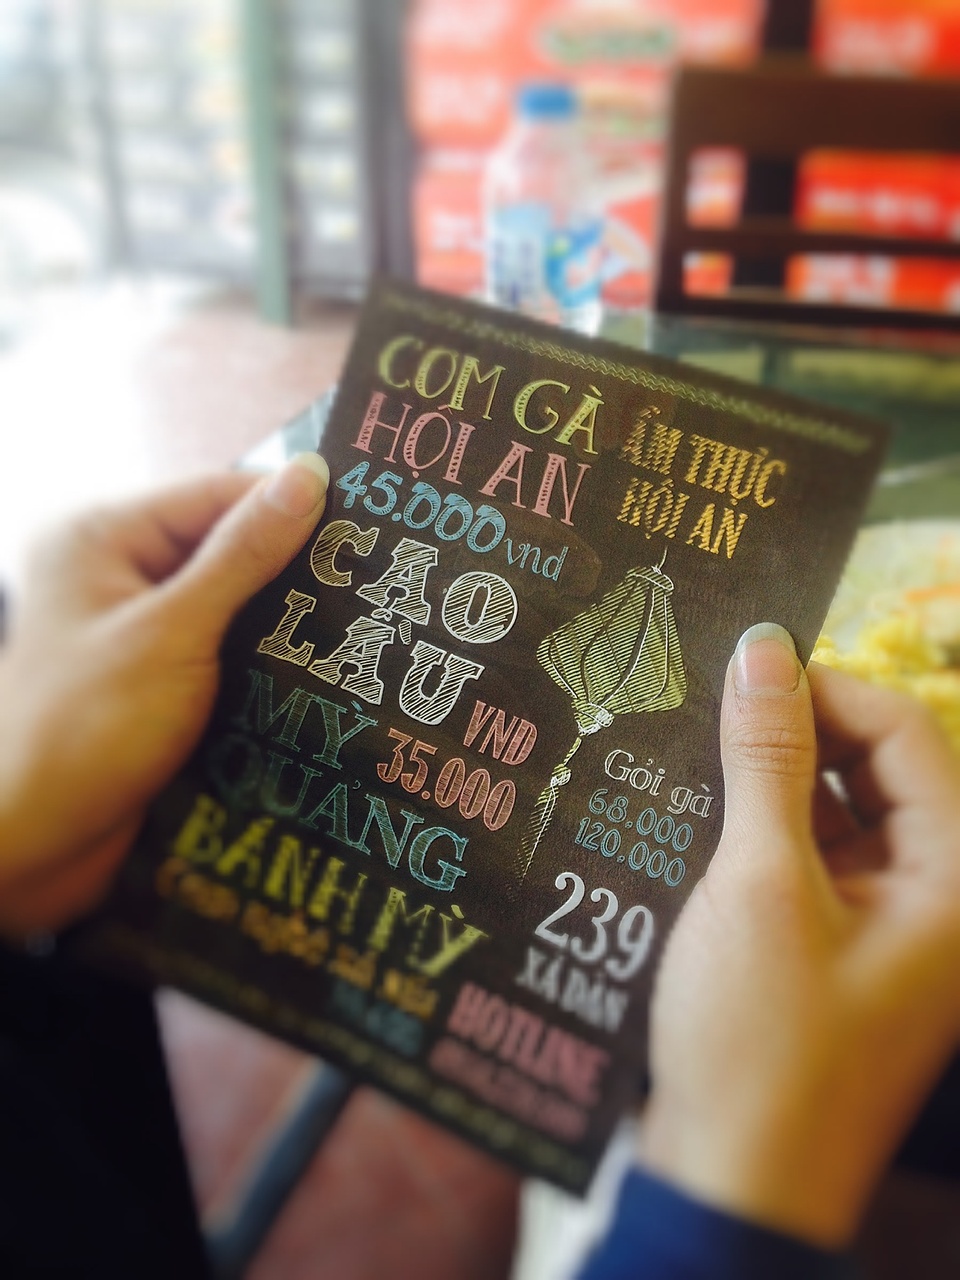 CƠM GÀ
HỘI AN
45.000 vnd
CAO
LẦU
VND
35.000
MỲ
QUẢNG
BÁNH MỲ
ẨM THỰC
HỘI AN
Gỏi gà
68.000
120.000
239
XÃ ĐÀN
HOTLINE